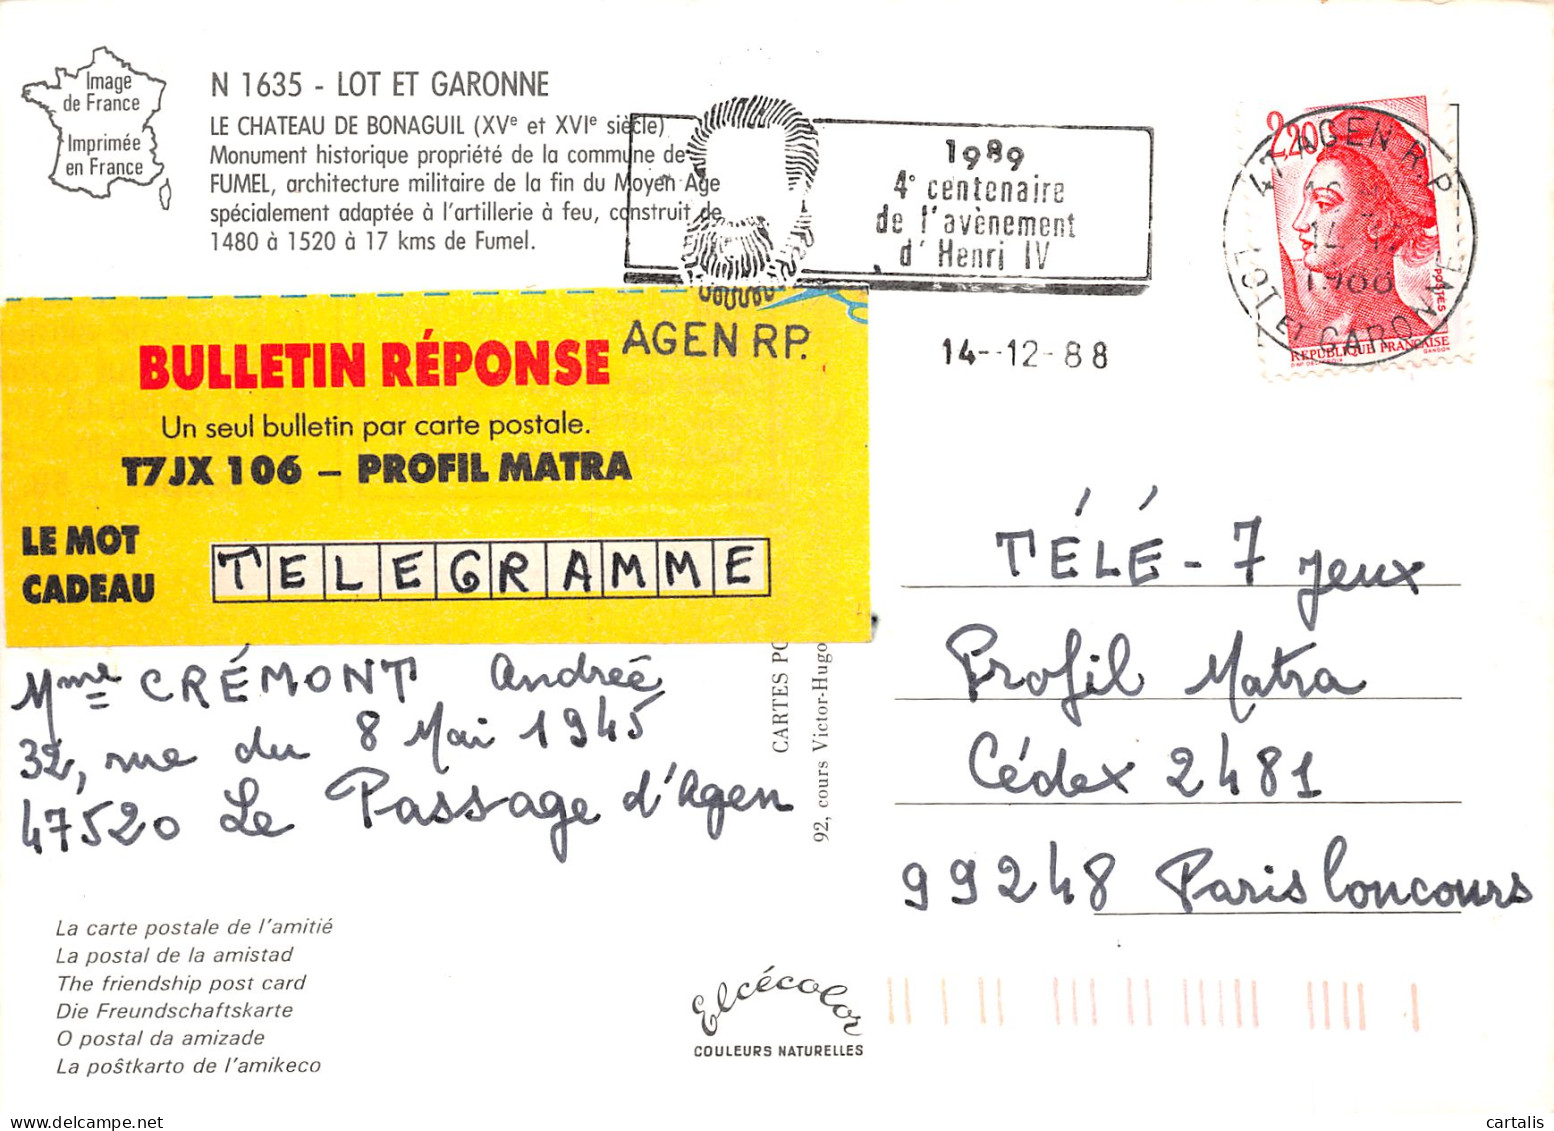 Image
de France
Imprimée
en France
N 1635 - LOT ET GARONNE
LE CHATEAU DE BONAGUIL (XVe et XVIe siècle)
Monument historique propriété de la commune de
FUMEL, architecture militaire de la fin du Moyen Age
spécialement adaptée à l'artillerie à feu, construit de
1480 à 1520 à 17 kms de Fumel.
1989
4e centenaire
de l'avènement
d'Henri IV
AGEN RP.
14-12-88
47 AGEN R.P
14-12
1988
LOT ET GARONNE
2,20
POSTES
REPUBLIQUE FRANÇAISE
GANDON
BULLETIN RÉPONSE
Un seul bulletin par carte postale.
T7JX 106 – PROFIL MATRA
LE MOT
CADEAU
TELEGRAMME
Mme CRÉMONT Andreé
32, rue du 8 Mai 1945
47520 Le Passage d'Agen
CARTES PO
92, cours Victor-Hugo
TÉLÉ-7 jeux
Profil Matra
Cédex 2481
99248 Paris Concours
La carte postale de l'amitié
La postal de la amistad
The friendship post card
Die Freundschaftskarte
O postal da amizade
La poŝtkarto de l'amikeco
Elcécolor
COULEURS NATURELLES
cartalis